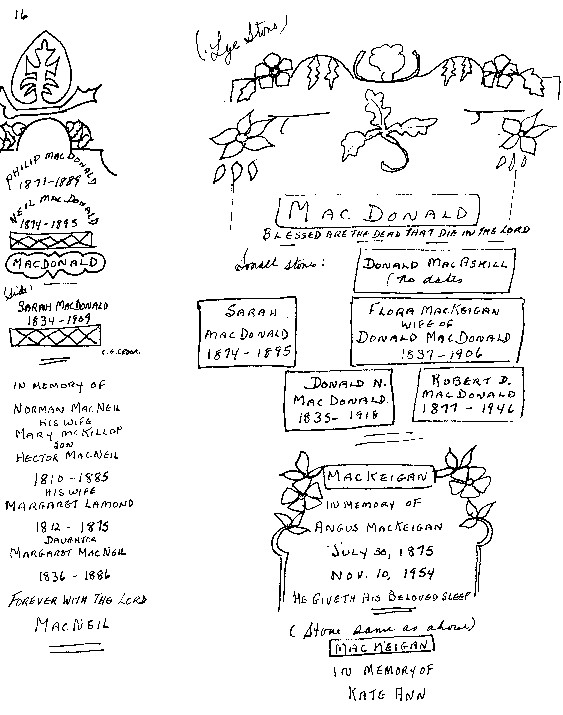 16
PHILIP MACDONALD
1871-1889
NEIL MACDONALD
1874-1895
MACDONALD
(side)
SARAH MACDONALD
1834-1909
IN MEMORY OF
NORMAN MACNEIL
HIS WIFE
MARY MCKILLOP
SON
HECTOR MACNEIL
1810-1885
HIS WIFE
MARGARET LAMOND
1812-1875
DAUGHTER
MARGARET MACNEIL
1836-1886
FOREVER WITH THE LORD
MACNEIL
(Lge Stone)
MAC DONALD
BLESSED ARE THE DEAD THAT DIE IN THE LORD
Small Stone:
DONALD MACASKILL
(no dates
SARAH
MACDONALD
1874-1895
FLORA MACKEIGAN
WIFE OF
DONALD MACDONALD
1837-1906
DONALD N.
MACDONALD
1835-1918
ROBERT D.
MACDONALD
1877-1946
MACKEIGAN
IN MEMORY OF
ANGUS MACKEIGAN
JULY 30, 1875
NOV. 10, 1954
HE GIVETH HIS BELOVED SLEEP
(Stone same as above)
MACKEIGAN
IN MEMORY OF
KATE ANN